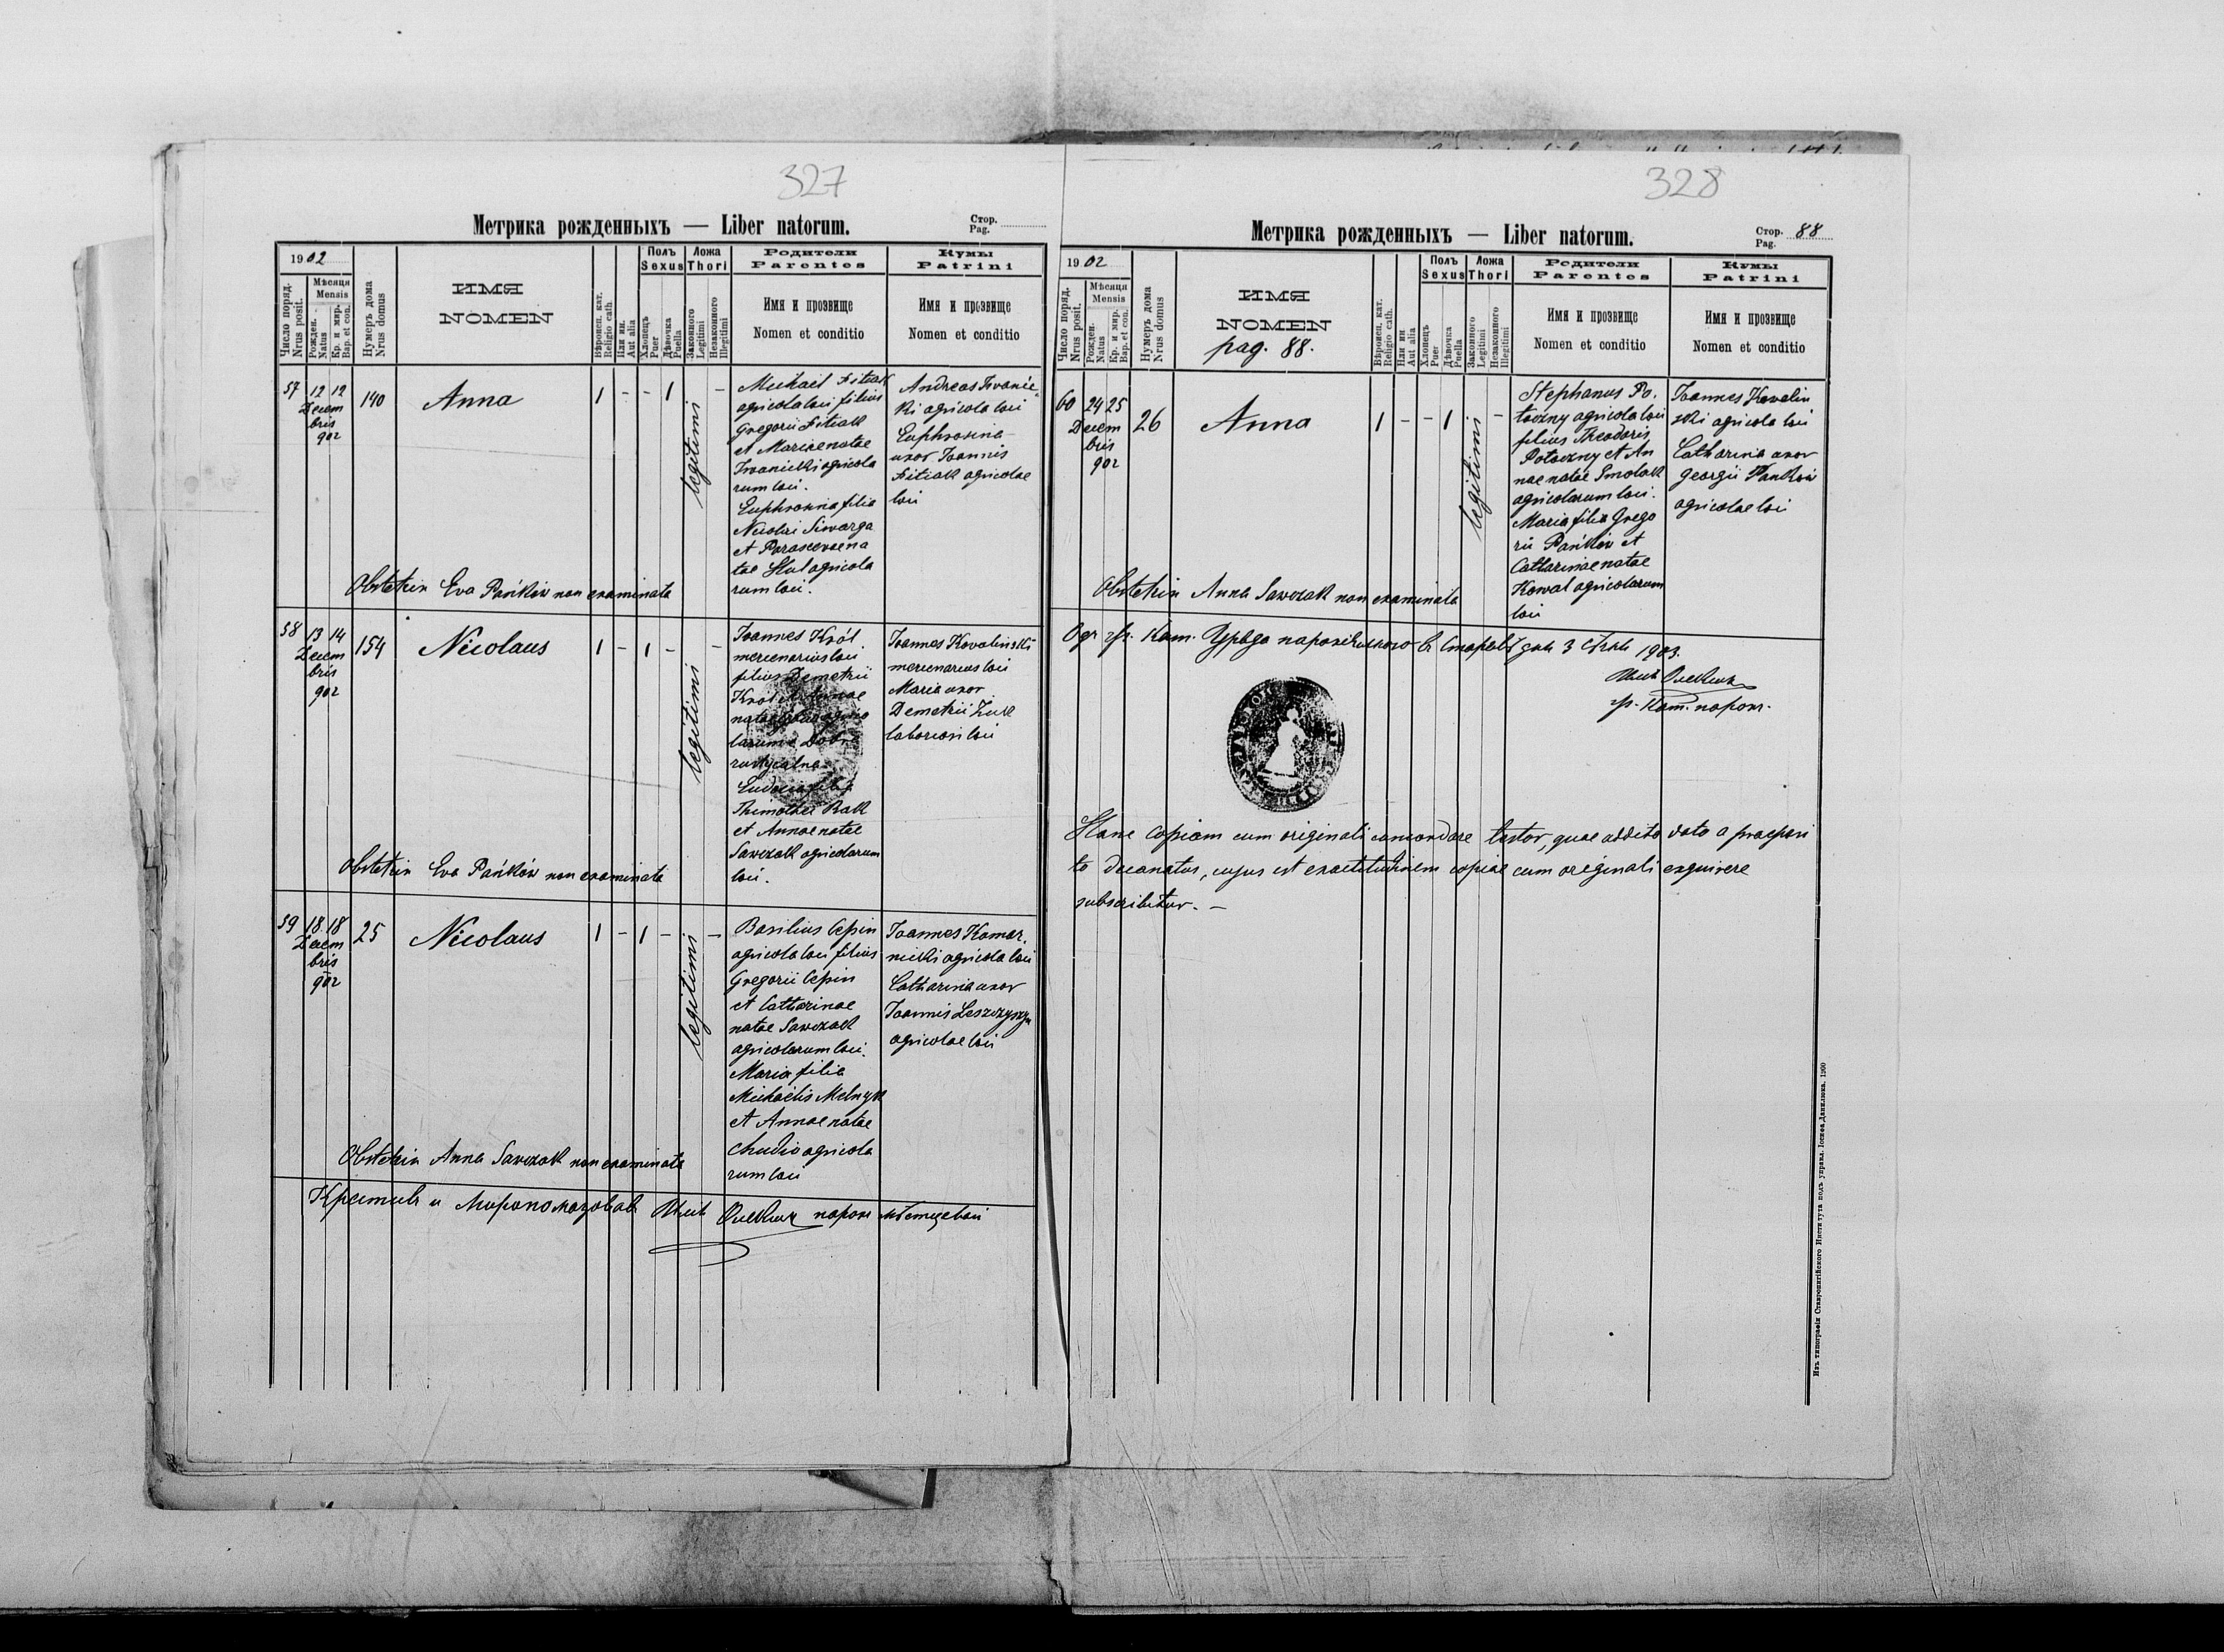 327
Метрика рожденныхъ — Liber natorum.
Стор.
Pag.
1902
Число поряд.
Nrus posit.
Мѣсяця
Mensis
Рожден.
Natus
Кр. и мир.
Bap. et con.
Нумеръ дома
Nrus domus
ИМЯ
NOMEN
Вѣроисп. кат.
Religio cath.
Или ин.
Aut alia
Полъ
Sexus
Хлопецъ
Puer
Дѣвочка
Puella
Ложа
Thori
Законного
Legitimi
Незаконного
Illegitimi
Родители
Parentes
Имя и прозвище
Nomen et conditio
Кумы
Patrini
Имя и прозвище
Nomen et conditio
57
12 12
Decem
bris
902
140
Anna
1 - - 1
legitimi
-
Michael Fitiak
agricola loci filius
Gregorii Fitiak
et Mariae natae
Iwanicki agricola
rum loci.
Euphrosina filia
Nicolai Siwarga
et Parascevae na
tae Hul agricola
rum loci.
Andreas Iwanic
ki agricola loci
Euphrosina
uxor Joannis
Fitiak agricolae
loci
Obstetrix Eva Pańków non examinata
58
13 14
Decem
bris
902
154
Nicolaus
1 - 1 -
legitimi
-
Joannes Król
mercenarius loci
filius Demetrii
Król et Annae
natae
larum e Dobra
rustycalna
Eudocia filia
Thimothei Bak
et Annae natae
Sawczak agricolarum
loci.
Joannes Kovalinski
mercenarius loci
Maria uxor
Demetrii Żuk
laboriosi loci
Obstetrix Eva Pańków non examinata
59
18 18
Decem
bris
902
25
Nicolaus
1 - 1 -
legitimi
-
Basilius Cepin
agricola loci filius
Gregorii Cepin
et Catharinae
natae Sawczak
agricolarum loci.
Maria filia
Michaelis Melnyk
et Annae natae
Chudio agricola
rum loci
Joannes Komar
nicki agricola loci
Catharina uxor
Joannis Leszczyszyn
agricolae loci
Obstetrix Anna Sawczak non examinata
Крестивъ и миропомазовавъ парох мѣстцевый
328
Метрика рожденныхъ — Liber natorum.
Стор.
Pag. 88
1902
Число поряд.
Nrus posit.
Мѣсяця
Mensis
Рожден.
Natus
Кр. и мир.
Bap. et con.
Нумеръ дома
Nrus domus
ИМЯ
NOMEN
pag. 88.
Вѣроисп. кат.
Religio cath.
Или ин
Aut alia
Полъ
Sexus
Хлопецъ
Puer
Дѣвочка
Puella
Ложа
Thori
Законного
Legitimi
Незаконного
Illegitimi
Родители
Parentes
Имя и прозвище
Nomen et conditio
Кумы
Patrini
Имя и прозвище
Nomen et conditio
60
24 25
Decem
bris
902
26
Anna
1 - - 1
legitimi
-
Stephanus Po
toczny agricola loci
filius Theodoris
Potoczny et An
nae natae Smolak
agricolarum loci.
Maria filia Grego
rii Pańków et
Catharinae natae
Kowal agricolarum
loci
Joannes Kovalin
ski agricola loci
Catharina uxor
Georgii Pańków
agricolae loci
Obstetrix Anna Sawczak non examinata
Одъ гр. кат. Уряда парохіяльного въ дня 3 1903.
гр. кат. парох.
Hanc copiam cum originali concordare testor, quae addito dato a praeposi
to decanatus, cujus est exactitudinem copiae cum originali exquirere
subscribitur. —
Изъ типографіи Ставропигійского Института подъ управл. Іосифа Данилюка. 1900